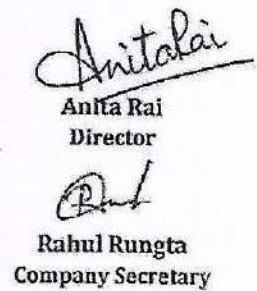 AnitaRai
Anita Rai
Director
Rahul Rungta
Company Secretary